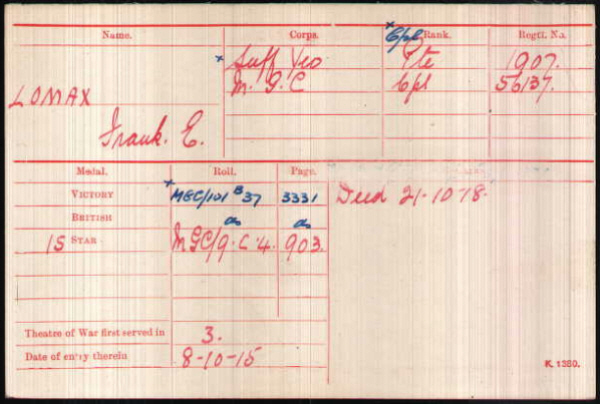 Name. Corps. Rank. Regtl. No.
x Cpl
x Suff Yeo Pte 1907.
M. G. C Cpl 56137.
LOMAX
Frank. E.
Medal. Roll. Page.
VICTORY x MGC/101 B 37 3331 Died 21-10-18.
BRITISH do do
15 STAR MGC/9.C.4. 903.
Theatre of War first served in 3.
Date of entry therein 8-10-15
K. 1380.